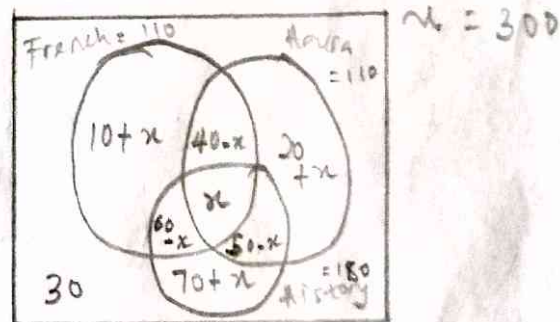 French = 110
Hausa = 110
n = 300
10 + x
40 - x
20 + x
x
60 - x
50 - x
70 + x
= 180 History
30